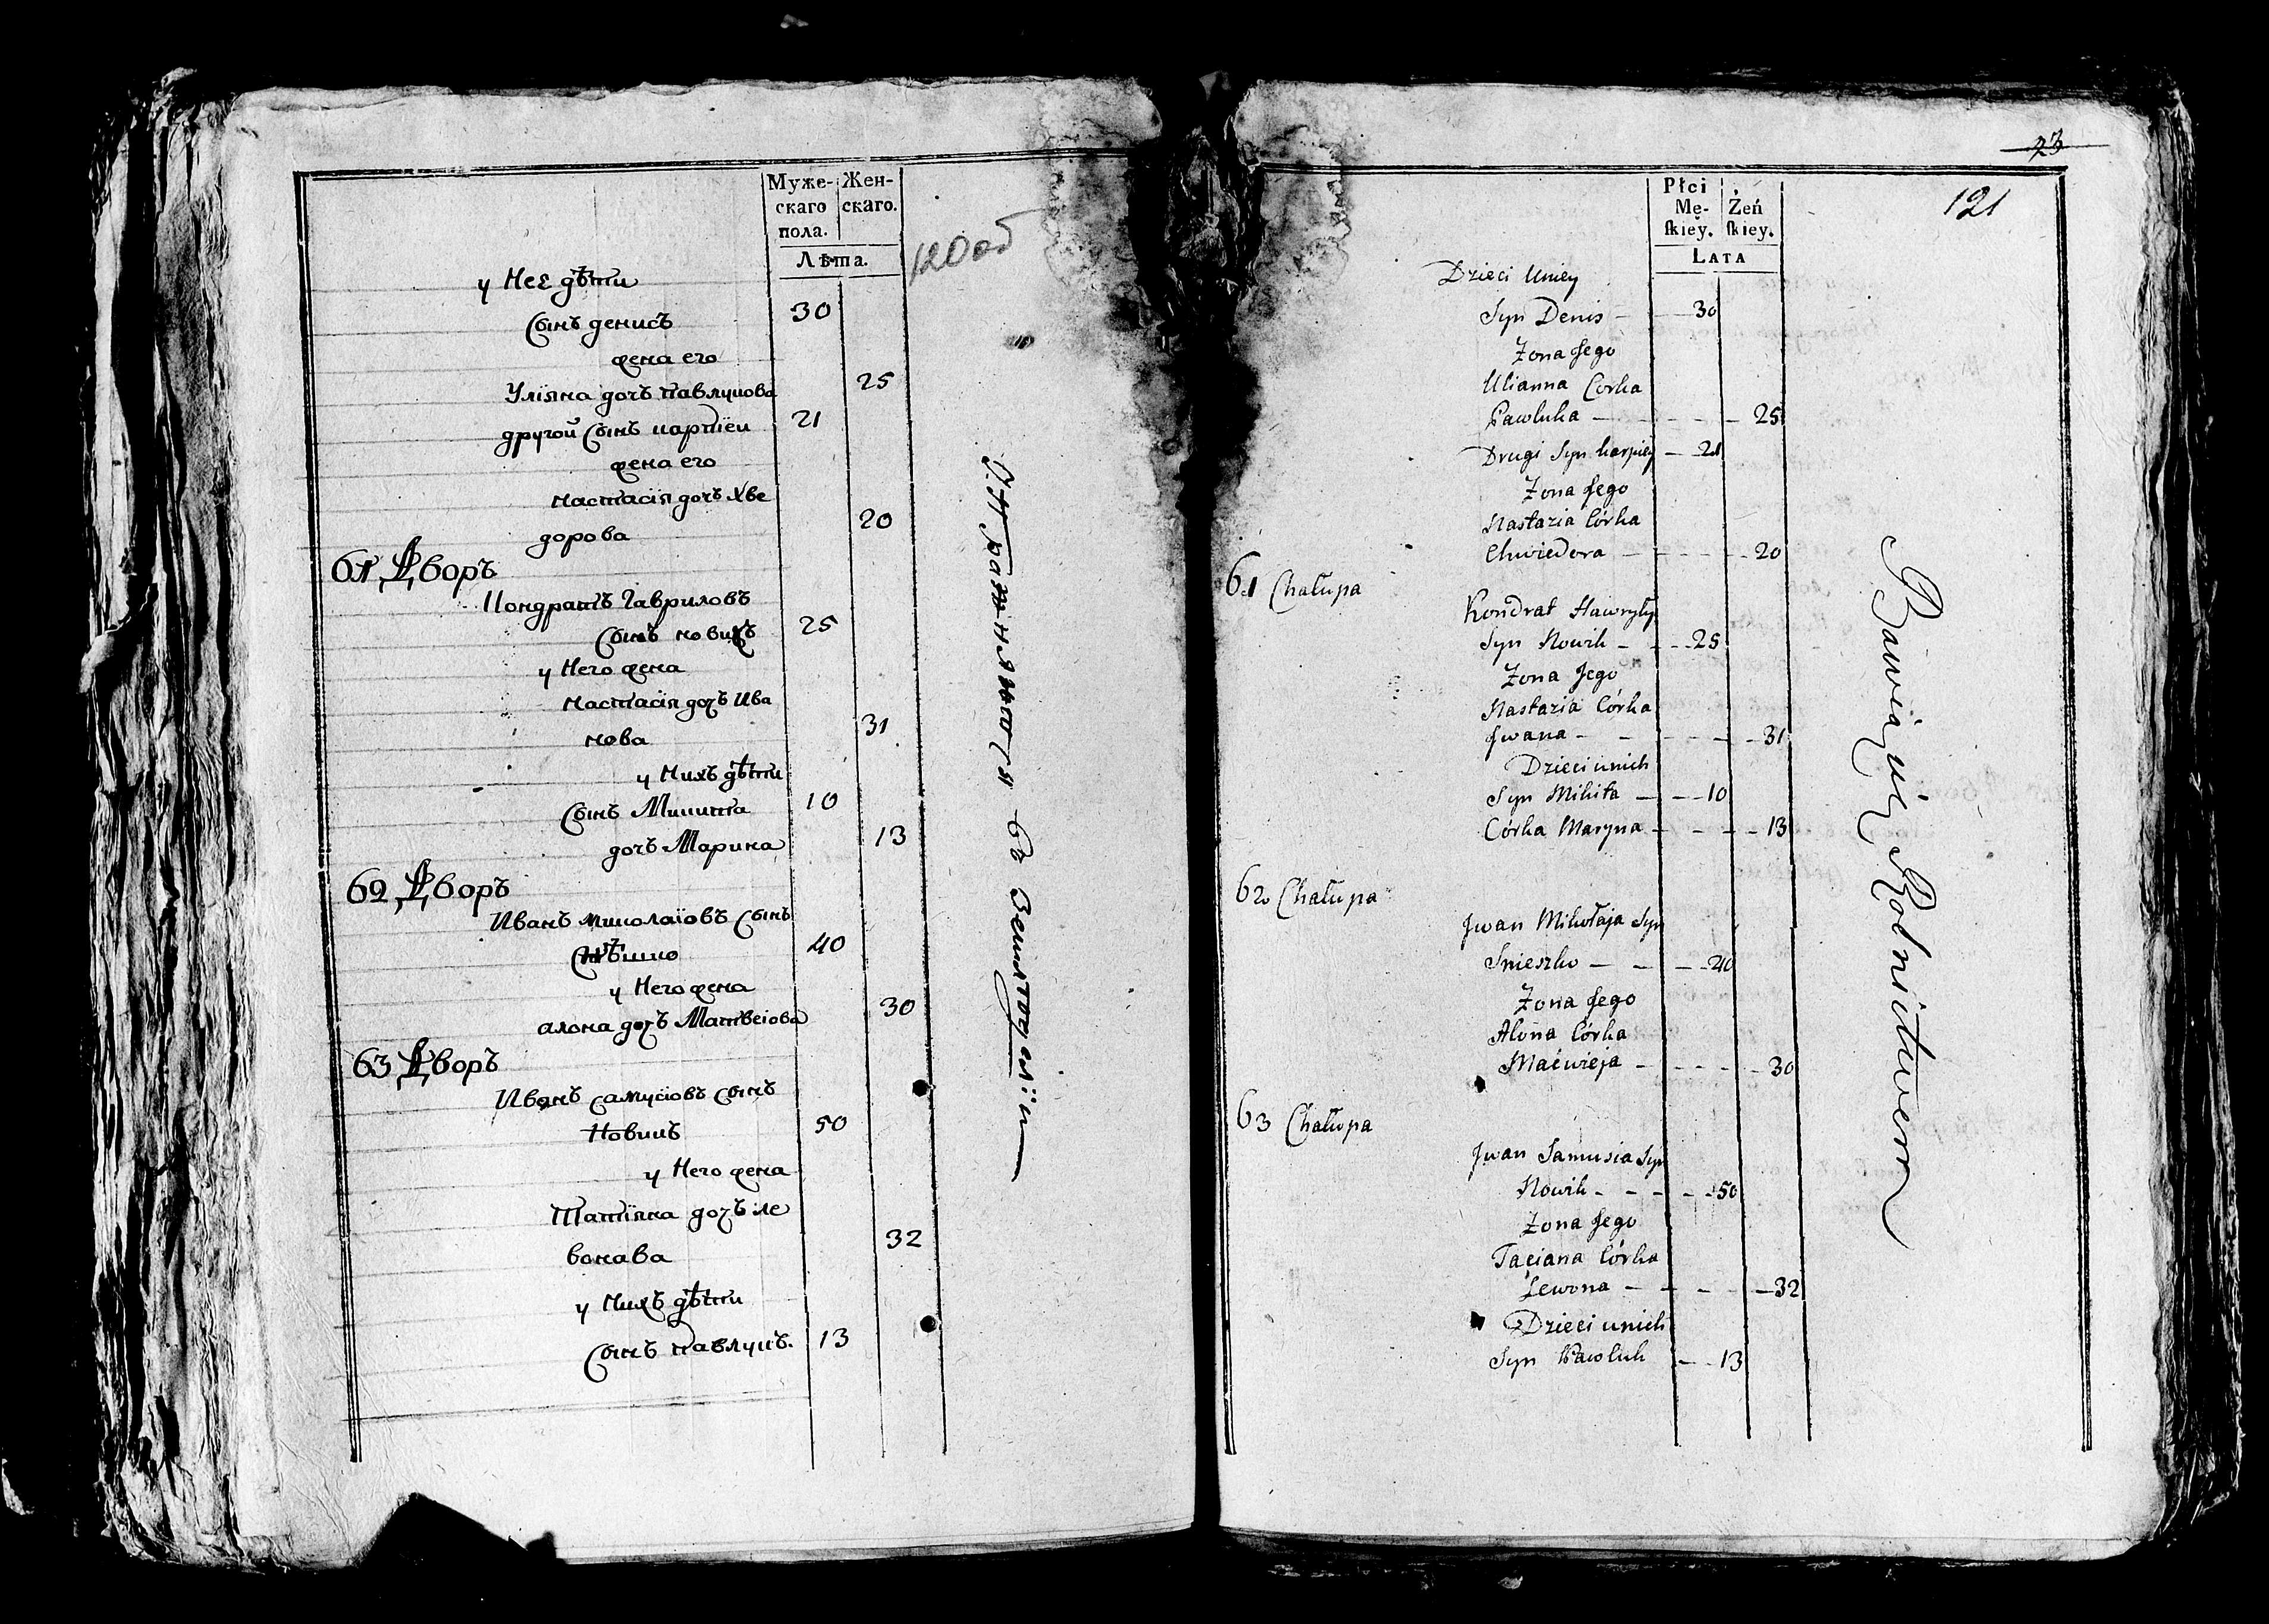 Муже- Жен-
скаго скаго.
пола.
Лѣта.
120 об
у Нее дѣти
Сынъ денисъ 30
жена его
Улiяна дочъ павлукова 25
другой Сынъ карпiеи 21
жена его
настасiя дочъ хве
дорова 20
61 Дворъ
Кондратъ Гавриловъ
Сынъ новикъ 25
у Него жена
настасiя дочъ Ива
нова 31
у Нихъ дѣти
Сынъ Микита 10
дочъ Марина 13
62 Дворъ
Иванъ миколаïовъ Сынъ
Снѣшко 40
у Него жена
алона дочъ Матвеiова 30
63 Дворъ
Иванъ самусiовъ сынъ
Новикъ 50
у Него жена
Татiяна дочъ ле
вонава 32
у Нихъ дѣти
Сынъ павлукъ. 13
73
121
Płci Żeń
Mę- skiey.
skiey.
LATA
Dzieci Uniey
Syn Denis - 30
Żona Jego
Ulianna Corka
Pawluka - - - - - 25
Drugi Syn karpiey - 21
Żona Jego
Nastazia Córka
Chwiedora - - - - - 20
61 Chałupa
Kondrat Hawryły
Syn Nowik - - - 25
Żona Jego
Nastazia Córka
Jwana - - - - - - 31
Dzieci unich
Syn Mikita - - - 10
Córka Maryna - - - - 13
62 Chałupa
Jwan Mikołaja Syn
Snieszko - - - - 40
Żona Jego
Alona Córka
Maćwieja - - - - - 30
63 Chałupa
Jwan Samusia Syn
Nowik - - - - - 50
Żona Jego
Taciana Córka
Lewona - - - - - 32
Dzieci unich
Syn Pawluk - - 13
Bawią się Rolnictwem